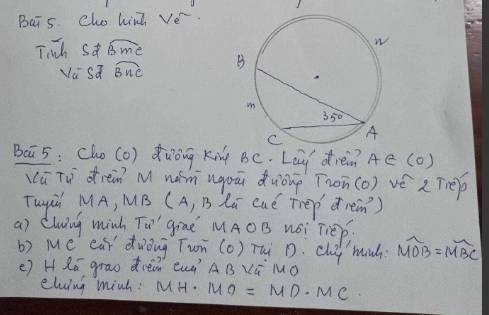 Bài 5. Cho hình Vẽ.
Tính Sđ BmC
Và Sđ BnC
B
n
m
35°
C
A
Bài 5: Cho (O) đường Kính BC. Lấy điểm A ∈ (O)
Và Từ điểm M nằm ngoài đường Tròn (O) vẽ 2 Tiếp
Tuyến MA, MB (A, B là các Tiếp điểm)
a) Chứng minh Tứ giác MAOB nội Tiếp.
b) MC cắt đường Tròn (O) Tại D. Chg minh: MDB = MBC
c) H là giao điểm của AB và MO
Chứng minh: MH . MO = MD . MC.